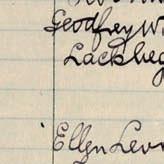 Geodfrey W
Lackbe
Ellen Lev